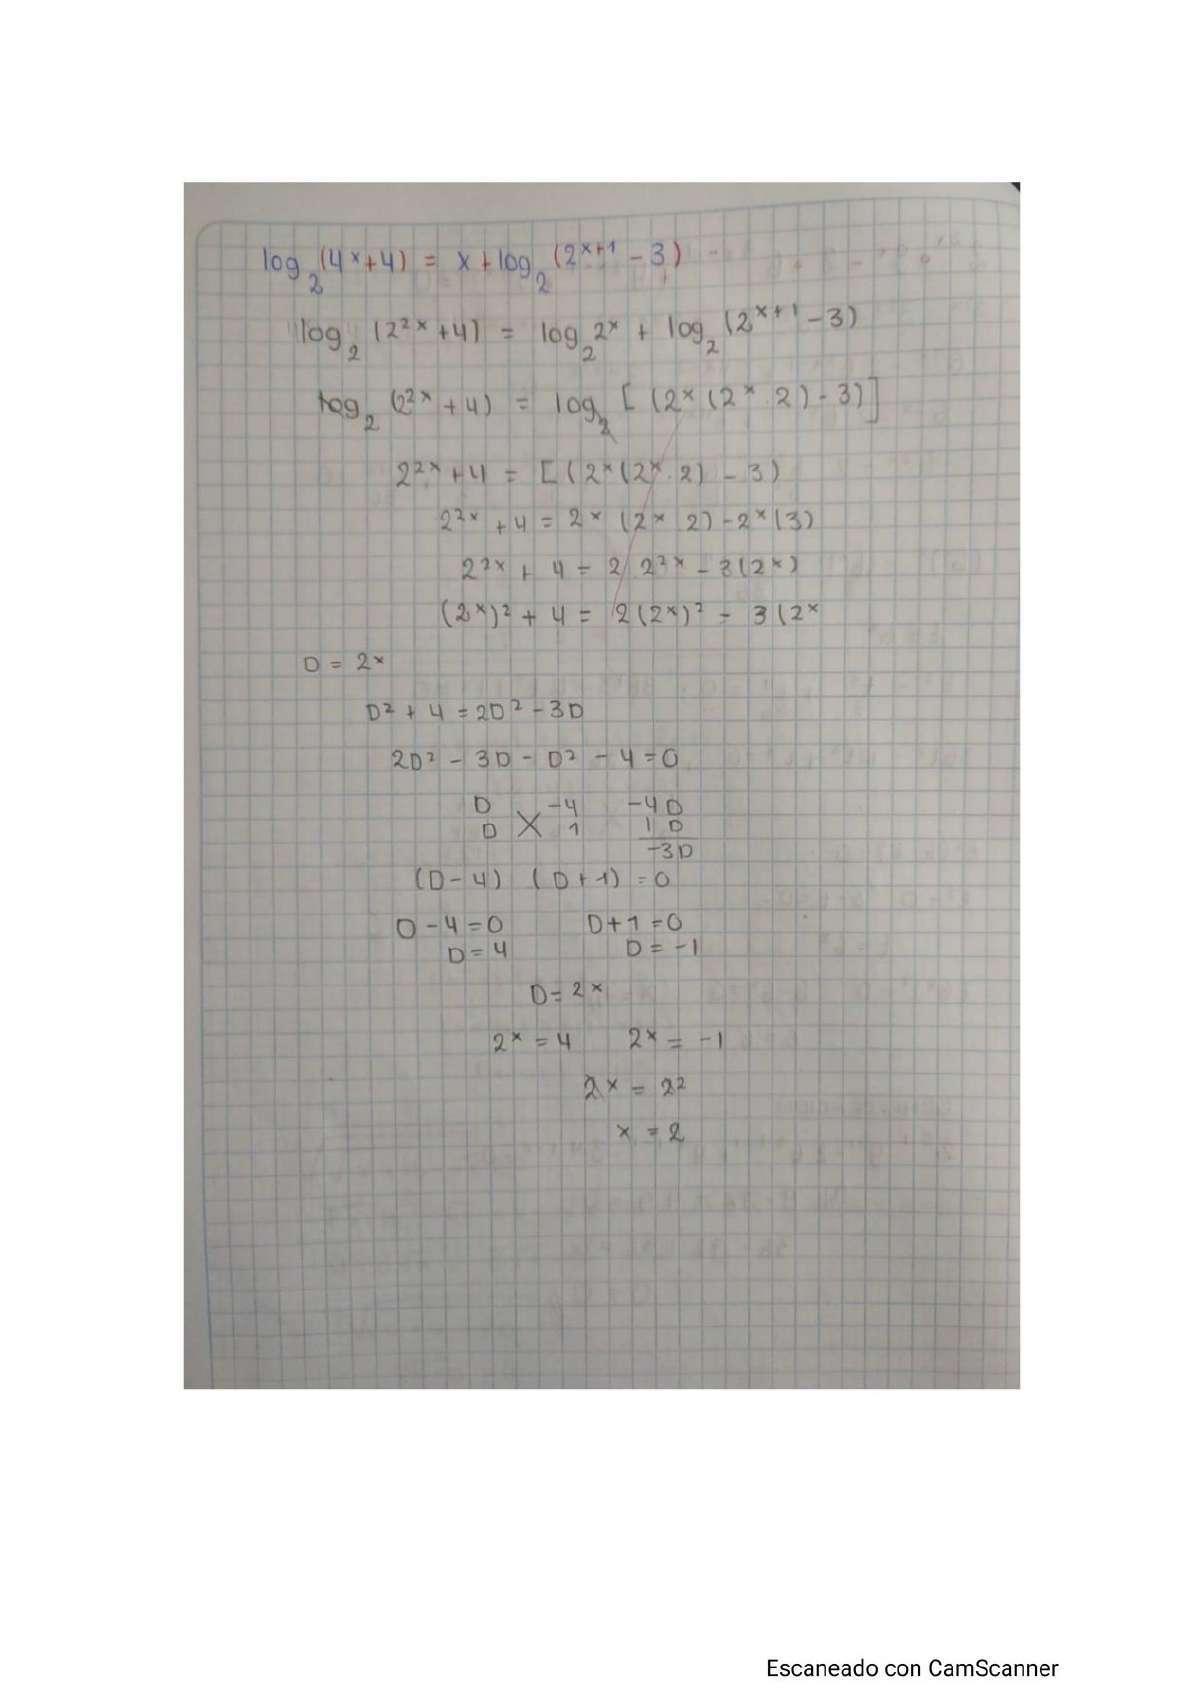 log₂(4ˣ+4) = x + log₂(2ˣ⁺¹ - 3)
log₂(2²ˣ+4) = log₂2ˣ + log₂(2ˣ⁺¹ - 3)
log₂(2²ˣ+4) = log₂[(2ˣ(2ˣ·2) - 3)]
2²ˣ+4 = [(2ˣ(2ˣ·2) - 3)
2²ˣ+4 = 2ˣ(2ˣ 2) - 2ˣ(3)
2²ˣ + 4 = 2 2²ˣ - 3(2ˣ)
(2ˣ)² + 4 = 2(2ˣ)² - 3(2ˣ
D = 2ˣ
D² + 4 = 2D² - 3D
2D² - 3D - D² - 4 = 0
D -4 -4D
D 1 1D
-3D
(D-4) (D+1) = 0
D-4=0 D+1=0
D=4 D=-1
D=2ˣ
2ˣ = 4 2ˣ = -1
2ˣ = 2²
x = 2
Escaneado con CamScanner